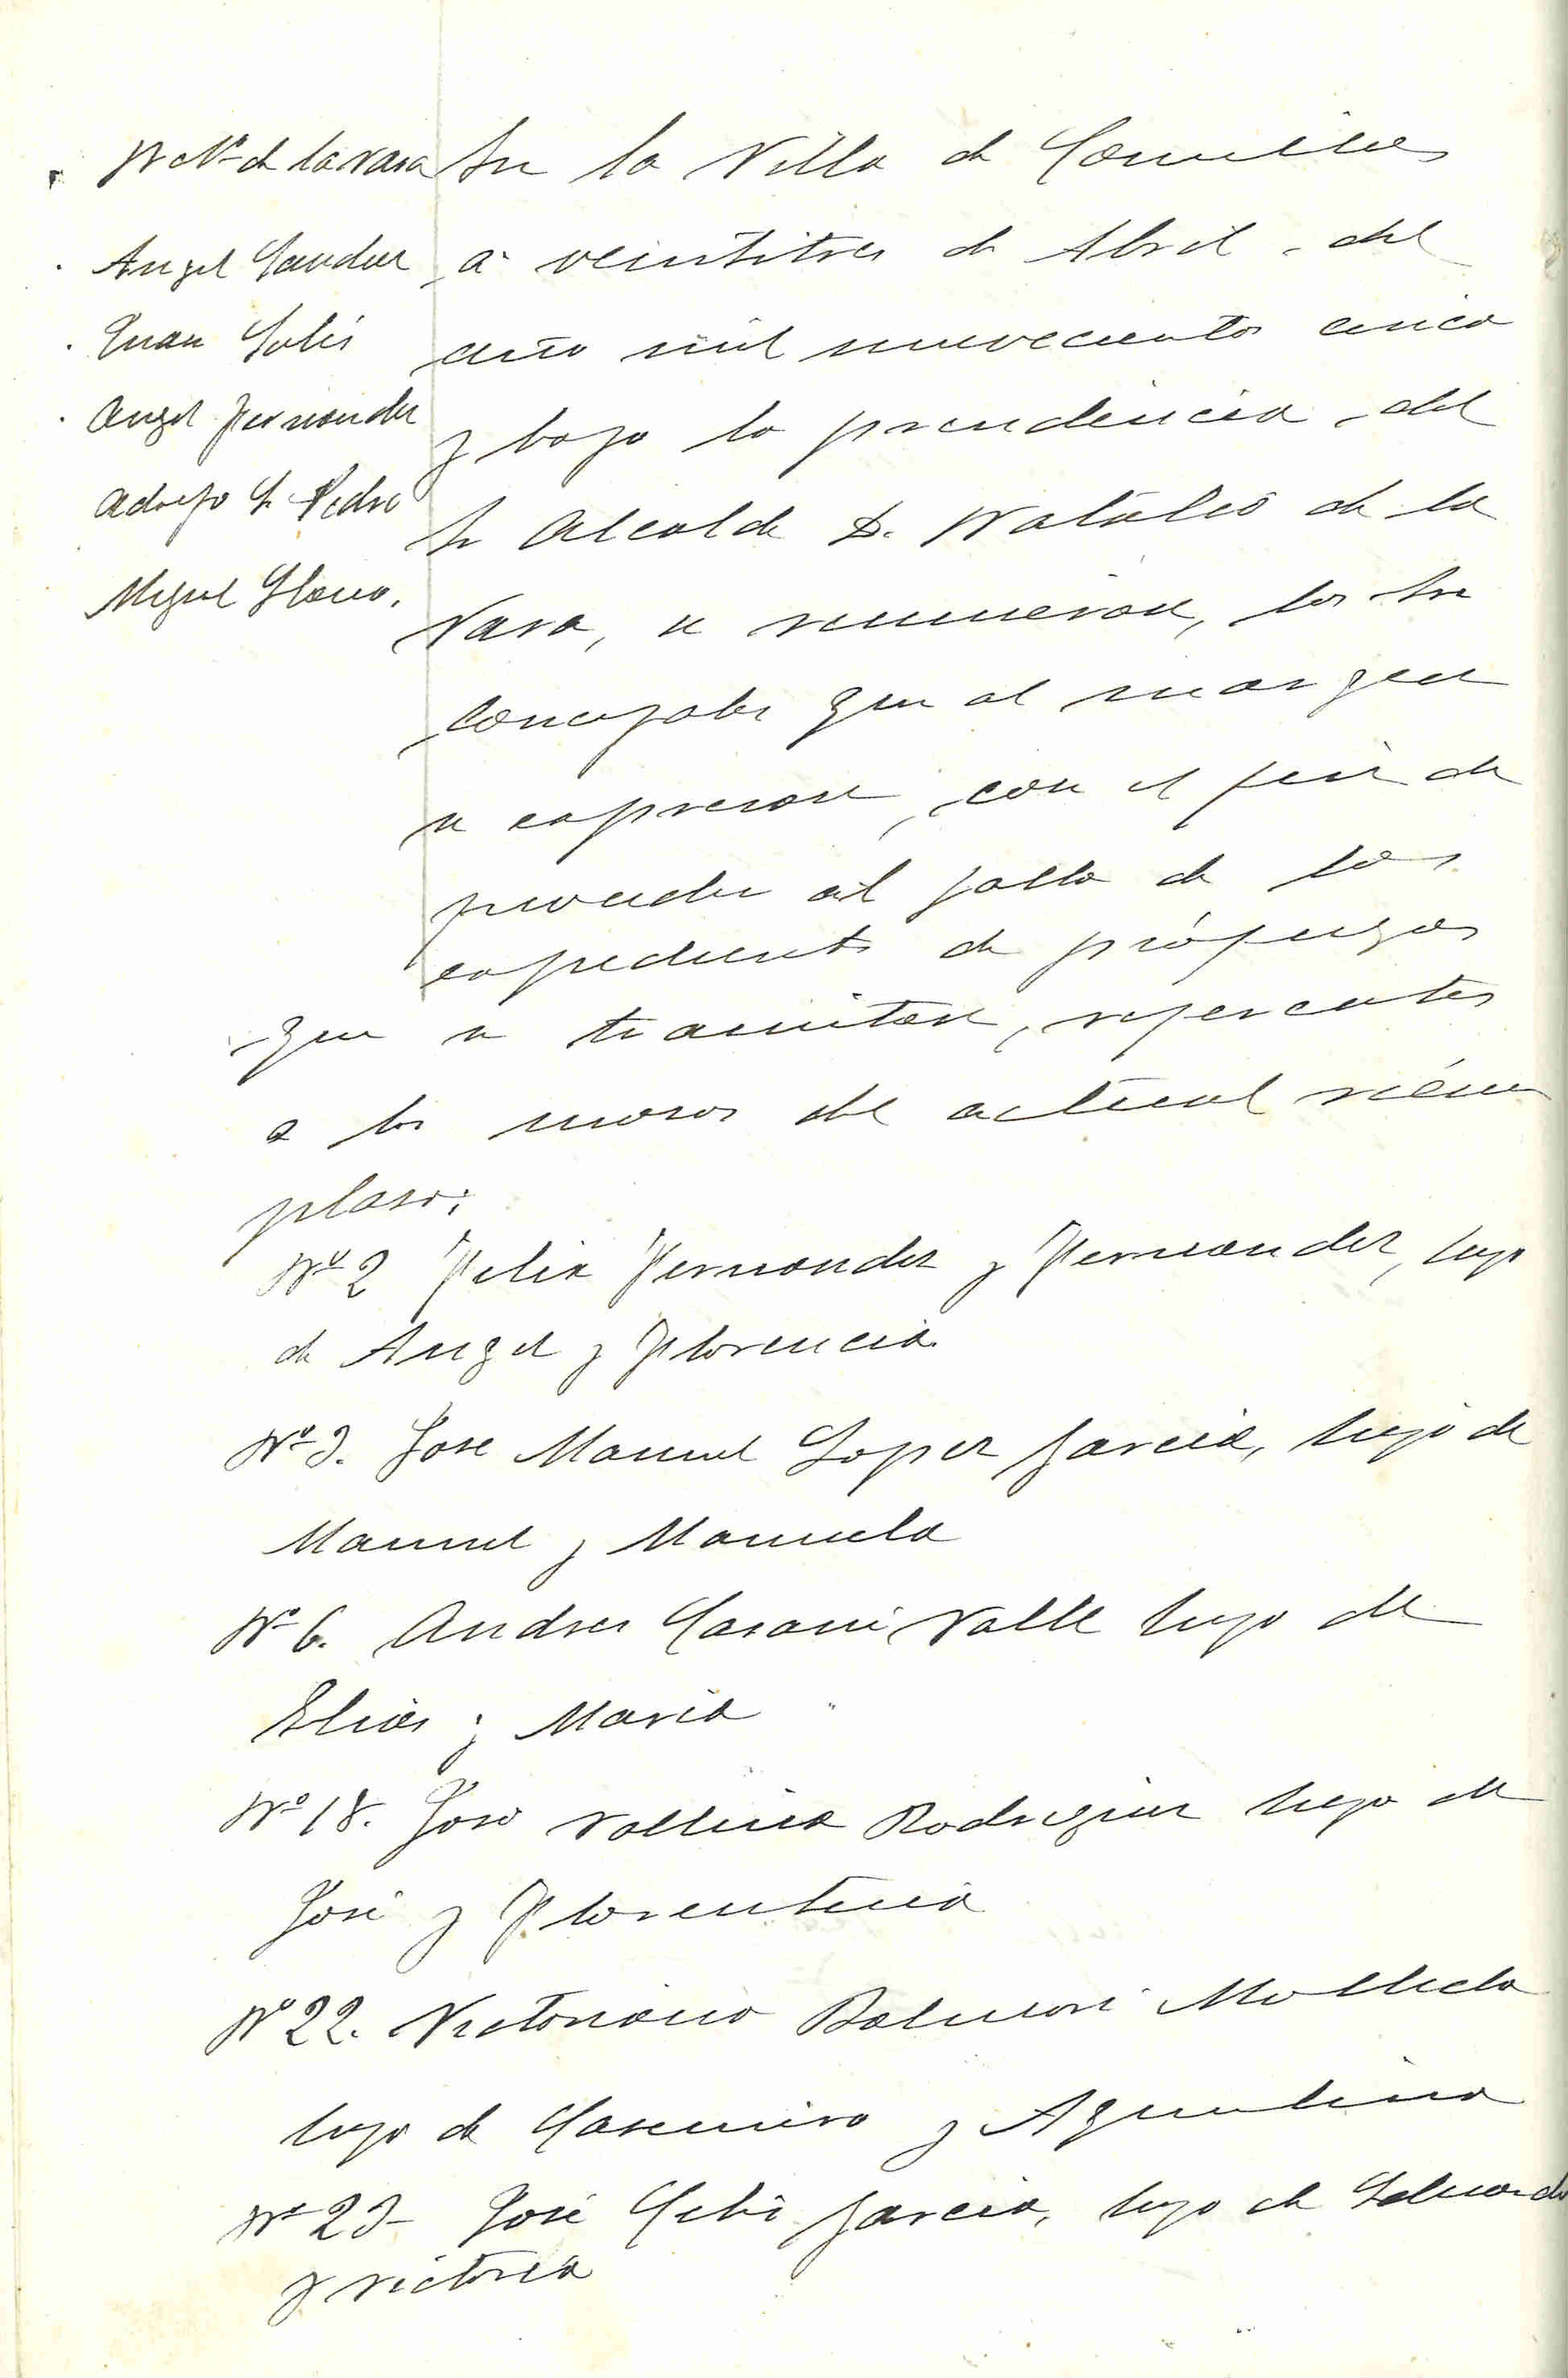 Angel Sanchez
Juan Solis
Angel Fernandez
Adolfo S. Pedro
Miguel Llano.
En la Villa de Comillas
a veintitres de Abril del
año mil novecientos cinco
y bajo la presidencia del
Sr Alcalde D. Natalio de la
Vara, se reunieron, los Sres
Concejales que al margen
se expresan, con el fin de
proceder al fallo de los
expedientes de prófugos
que se tramitan, referentes
a los mozos del actual reem
plazo:
Nº 2 Felix Fernandez y Fernandez, hijo
de Angel y Florencia
Nº 3. Jose Manuel Lopez Garcia, hijo de
Manuel y Manuela
Nº 6. Andres Valle hijo de
Elias y Maria
Nº 18. Jose Vallina Rodriguez hijo de
José y Florentina
Nº 22. Victoriano Balmori Molleda
hijo de Casimiro y Agustina
Nº 23- José Garcia, hijo de Eduardo
y Victoria